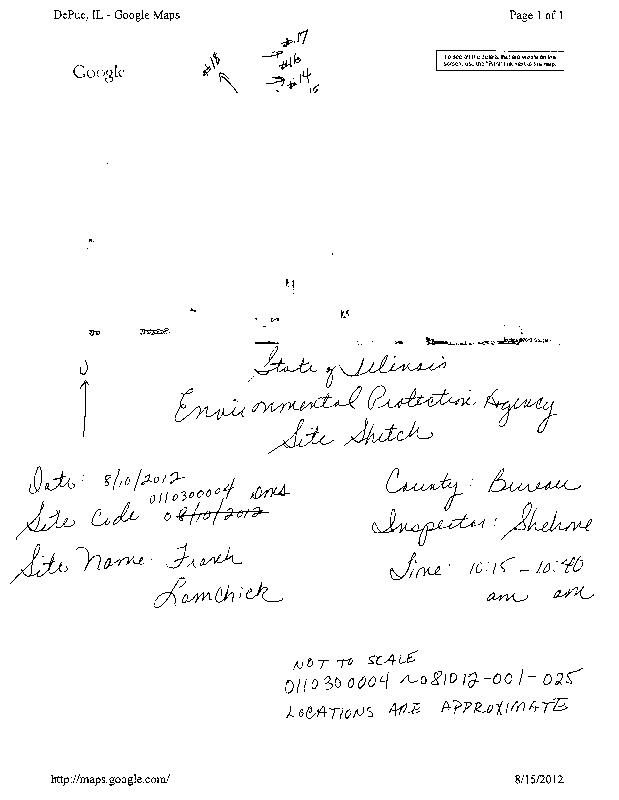 DePue, IL - Google Maps
Page 1 of 1
Google
To see all the details that are visible on the
screen, use the "Print" link next to the map.
#17
#18
#16
#14
15
State of Illinois
Environmental Protection Agency
Site Sketch
Date: 8/10/2012
0110300004
Site Code 08/10/2012
Site Name: Frank
Lamchick
County: Bureau
Inspector:
Time: 10:15 - 10:40
am am
NOT TO SCALE
0110300004 ~081012-001-025
LOCATIONS ARE APPROXIMATE
http://maps.google.com/
8/15/2012